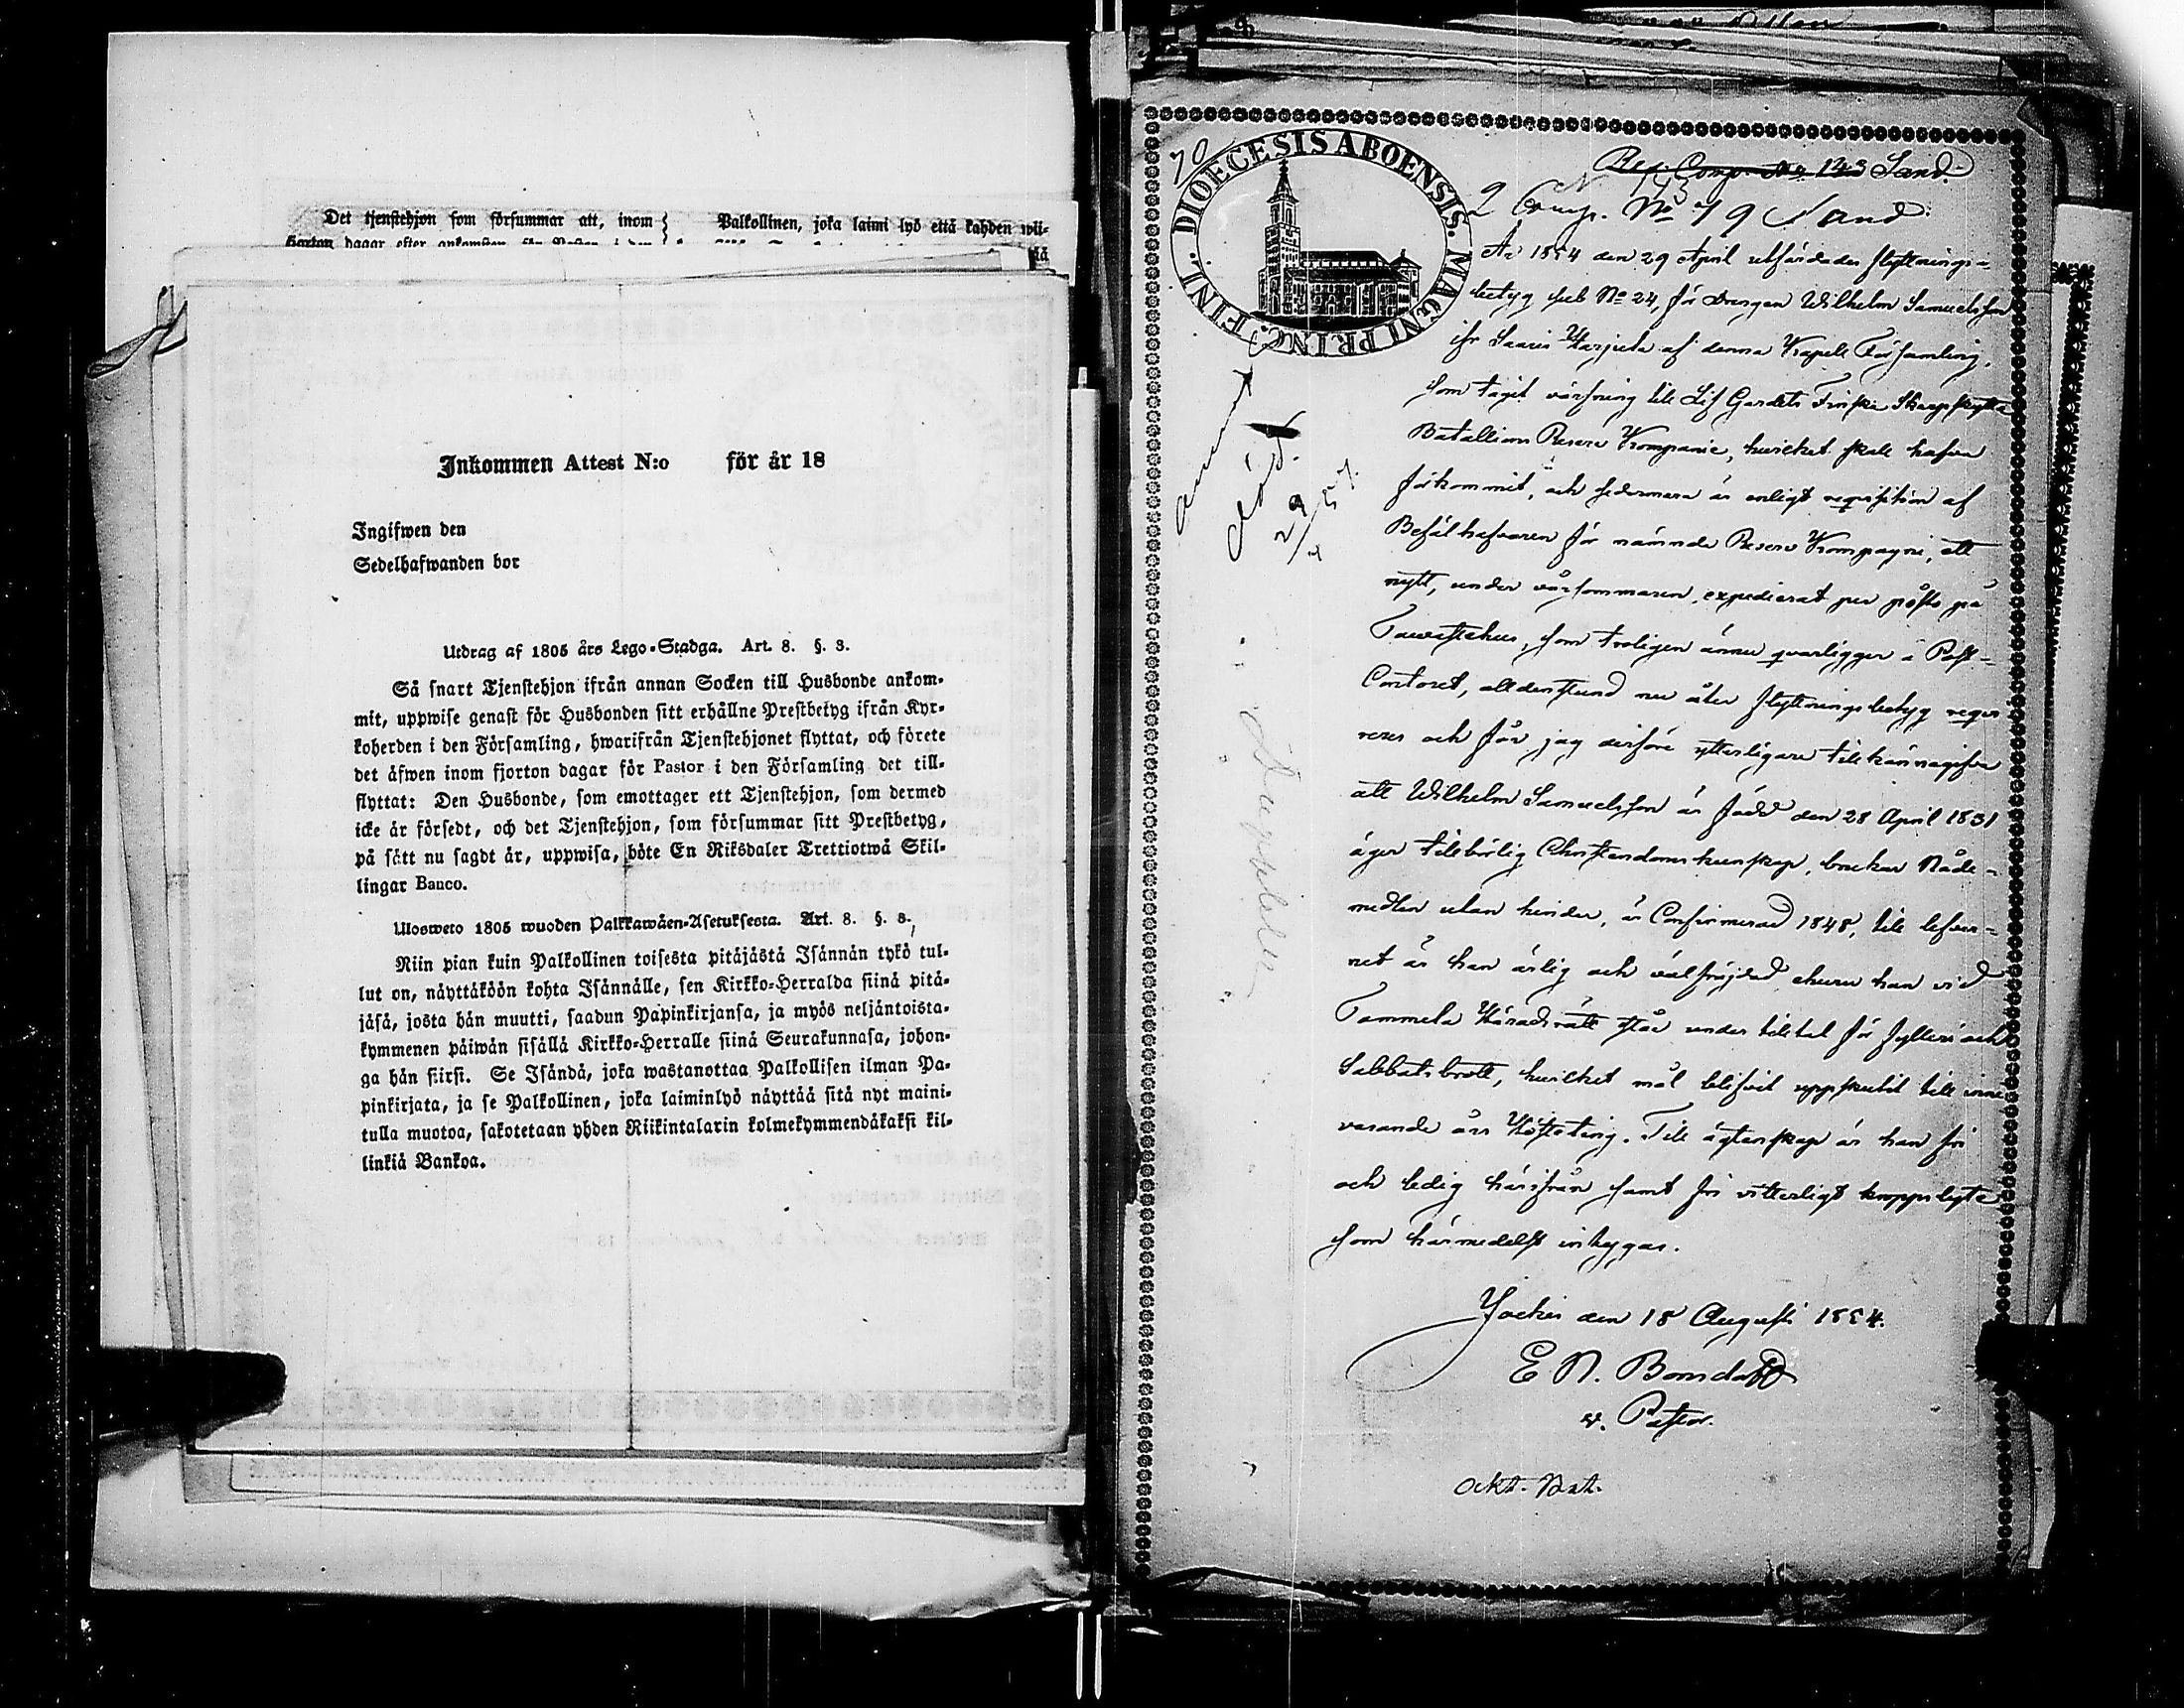 Det tjenstehjon som försummar att, inom
Palkollinen, joka laimi lyö että kahden wii-
Inkommen Attest N:o för år 18
Ingifwen den
Sedelhafwanden bor
Utdrag af 1805 års Lego-Stadga. Art. 8. §. 3.
Så snart Tjenstehjon ifrån annan Socken till Husbonde ankom-
mit, uppwise genast för Husbonden sitt erhållne Prestbetyg ifrån Kyr-
koherden i den Församling, hwarifrån Tjenstehjonet flyttat, och förete
det äfwen inom fjorton dagar för Pastor i den Församling det till-
flyttat: Den Husbonde, som emottager ett Tjenstehjon, som dermed
icke är försedt, och det Tjenstehjon, som försummar sitt Prestbetyg,
på sätt nu sagdt är, uppwisa, böte En Riksdaler Trettiotwå Skil-
lingar Banco.
Ulosweto 1805 wuoden Palkkawäen-Asetuksesta. Art. 8. §. 3.
Niin pian kuin Palkollinen toisesta pitäjästä Isännän tykö tul-
lut on, näyttäköön kohta Isännälle, sen Kirkko-Herralda siinä pitä-
jäsä, josta hän muutti, saadun Papinkirjansa, ja myös neljäntoista-
kymmenen päiwän sisällä Kirkko-Herralle siinä Seurakunnasa, johon-
ga hän siirsi. Se Isändä, joka wastanottaa Palkollisen ilman Pa-
pinkirjata, ja se Palkollinen, joka laiminlyö näyttää sitä nyt maini-
tulla muotoa, sakotetaan yhden Riikintalarin kolmekymmendäkaksi kil-
linkiä Bankoa.
70
DIOECESIS ABOENSIS. MAGNI PRINC. FINL.
Res. Comp. No 143 Sand.
N 143
2 Comp. No 79 Sand.
År 1854 den 29 April utfärdades flyttnings-
betyg sub No 24, för Drengen Wilhelm Samuelsson
ifr Saaris Harjula af denna Kapell Församling,
som tagit värfning till Lif Gardets Finska Skarpskytte
Bataillions Reserv Kompanie, hvilket skall hafva
förkommit, och sedermera är enligt reqvisition af
Befälhafvaren för nämnde Reserv Kompagni, ett
nytt, under vårsommaren, expedierat per posto på
Tavastehus, som troligen ännu qvarligger å Post-
Contoret, alldenstund nu åter flyttningsbetyg reqvi
reres och får jag derföre ytterligare tillkännagifva
att Wilhelm Samuelsson är född den 28 April 1831
äger tillbörlig Christendoms kunskap, brukar Nåde-
medlen utan hinder, är Confirmerad 1848, till lefver-
net är han ärlig och välfräjdad ehuru han vid
Tammela Häradsrätt står under tilltal för fylleri och
Sabbatsbrott, hvilket mål blifvit uppskutit till inne
varande års Hösteting. Till ägtenskap är han fri
och ledig härifrån samt fri vitterligt kroppslyte
som härmedelst intygas.
Jockis den 18 Augusti 1854.
E N. Bonsdorff
v. Pastor.
död
29/4 57.